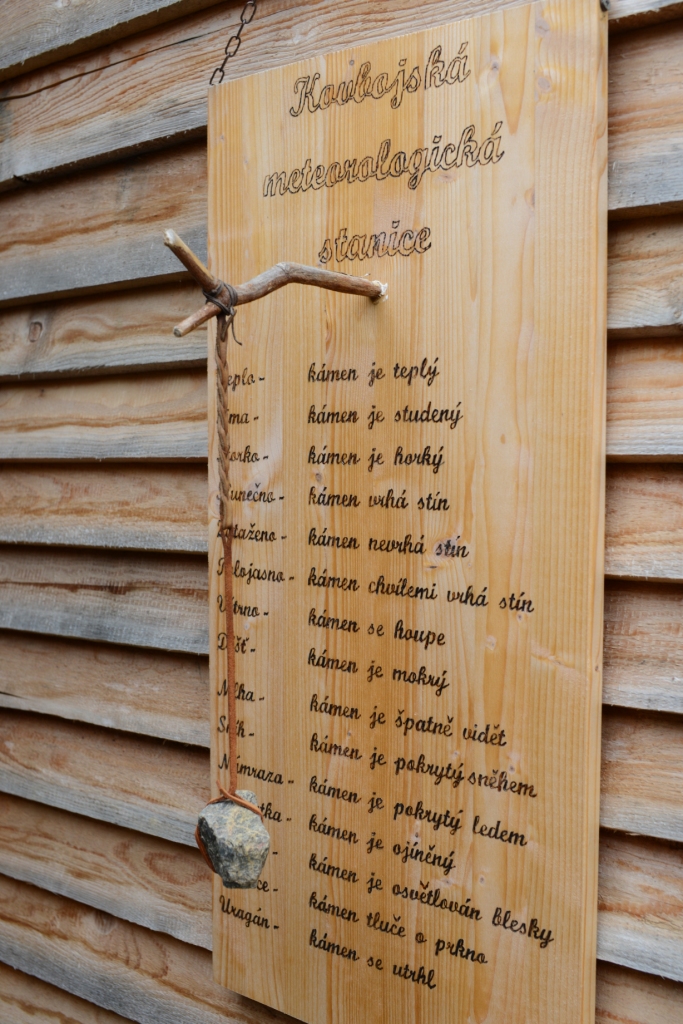 Kovbojská
meteorologická
stanice
eplo - kámen je teplý
ma - kámen je studený
orko - kámen je horký
unečno - kámen vrhá stín
Zataženo - kámen nevrhá stín
Polojasno - kámen chvílemi vrhá stín
Větrno - kámen se houpe
Déšť - kámen je mokrý
Mlha - kámen je špatně vidět
Sníh - kámen je pokrytý sněhem
Námraza - kámen je pokrytý ledem
tka - kámen je ojíněný
- kámen je osvětlován blesky
ce - kámen tluče o prkno
Uragán - kámen se utrhl